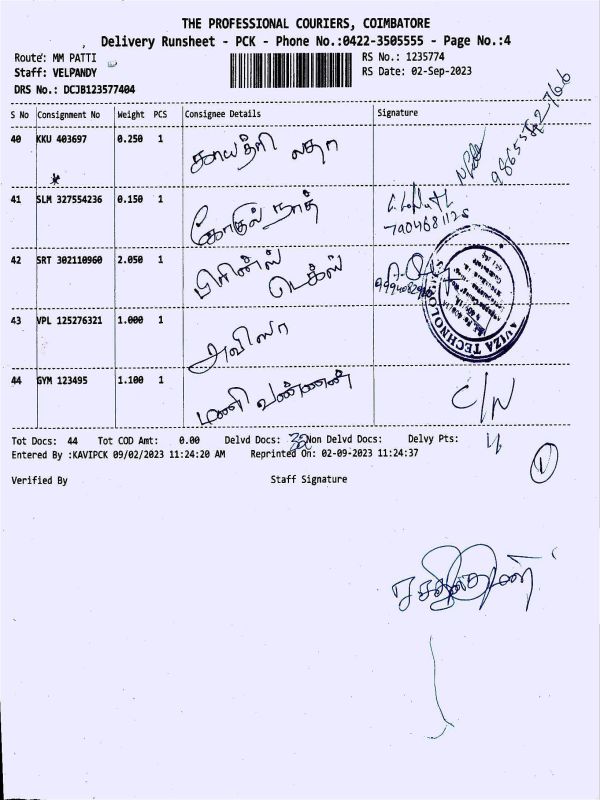 THE PROFESSIONAL COURIERS, COIMBATORE
Delivery Runsheet - PCK - Phone No.:0422-3505555 - Page No.:4
Route: MM PATTI
RS No.: 1235774
Staff: VELPANDY
RS Date: 02-Sep-2023
DRS No.: DCJB123577404
S No Consignment No Weight PCS Consignee Details Signature
40 KKU 403697 0.250 1 காயத்ரி லதா
41 SLM 327554236 0.150 1 கோகுல் நாத்
7904681126
42 SRT 302110960 2.050 1 பிரின்ஸ் டெக்ஸ்
43 VPL 125276321 1.000 1 அவிஸா
AVIZA TECHNOLO
44 GYM 123495 1.100 1 மணி வண்ணன் C/N
Tot Docs: 44 Tot COD Amt: 0.00 Delvd Docs: Non Delvd Docs: Delvy Pts:
Entered By :KAVIPCK 09/02/2023 11:24:20 AM Reprinted On: 02-09-2023 11:24:37
Verified By Staff Signature